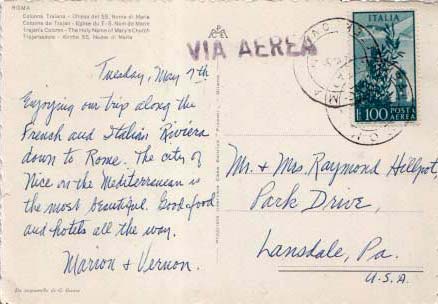 ROMA
Colonna Traiana - Chiesa del SS. Nome di Maria
Colonne de Trajan - Eglise du T. S. Nom de Marie
Trajan's Column - The Holy Name of Mary's Church
Trajanssäule - Kirche SS. Namen di Maria
VIA AEREA
ITALIA
100 POSTA
AEREA
Tuesday, May 7th
Enjoying our trip along the
French and Italian Riviera
down to Rome. The city of
Nice on the Mediterranean is
the most beautiful. Good food
and hotels all the way.
Marion & Vernon.
Mr. & Mrs. Raymond Hillpot,
Park Drive,
Lansdale, Pa.
U.S.A.
Da acquarello di G.